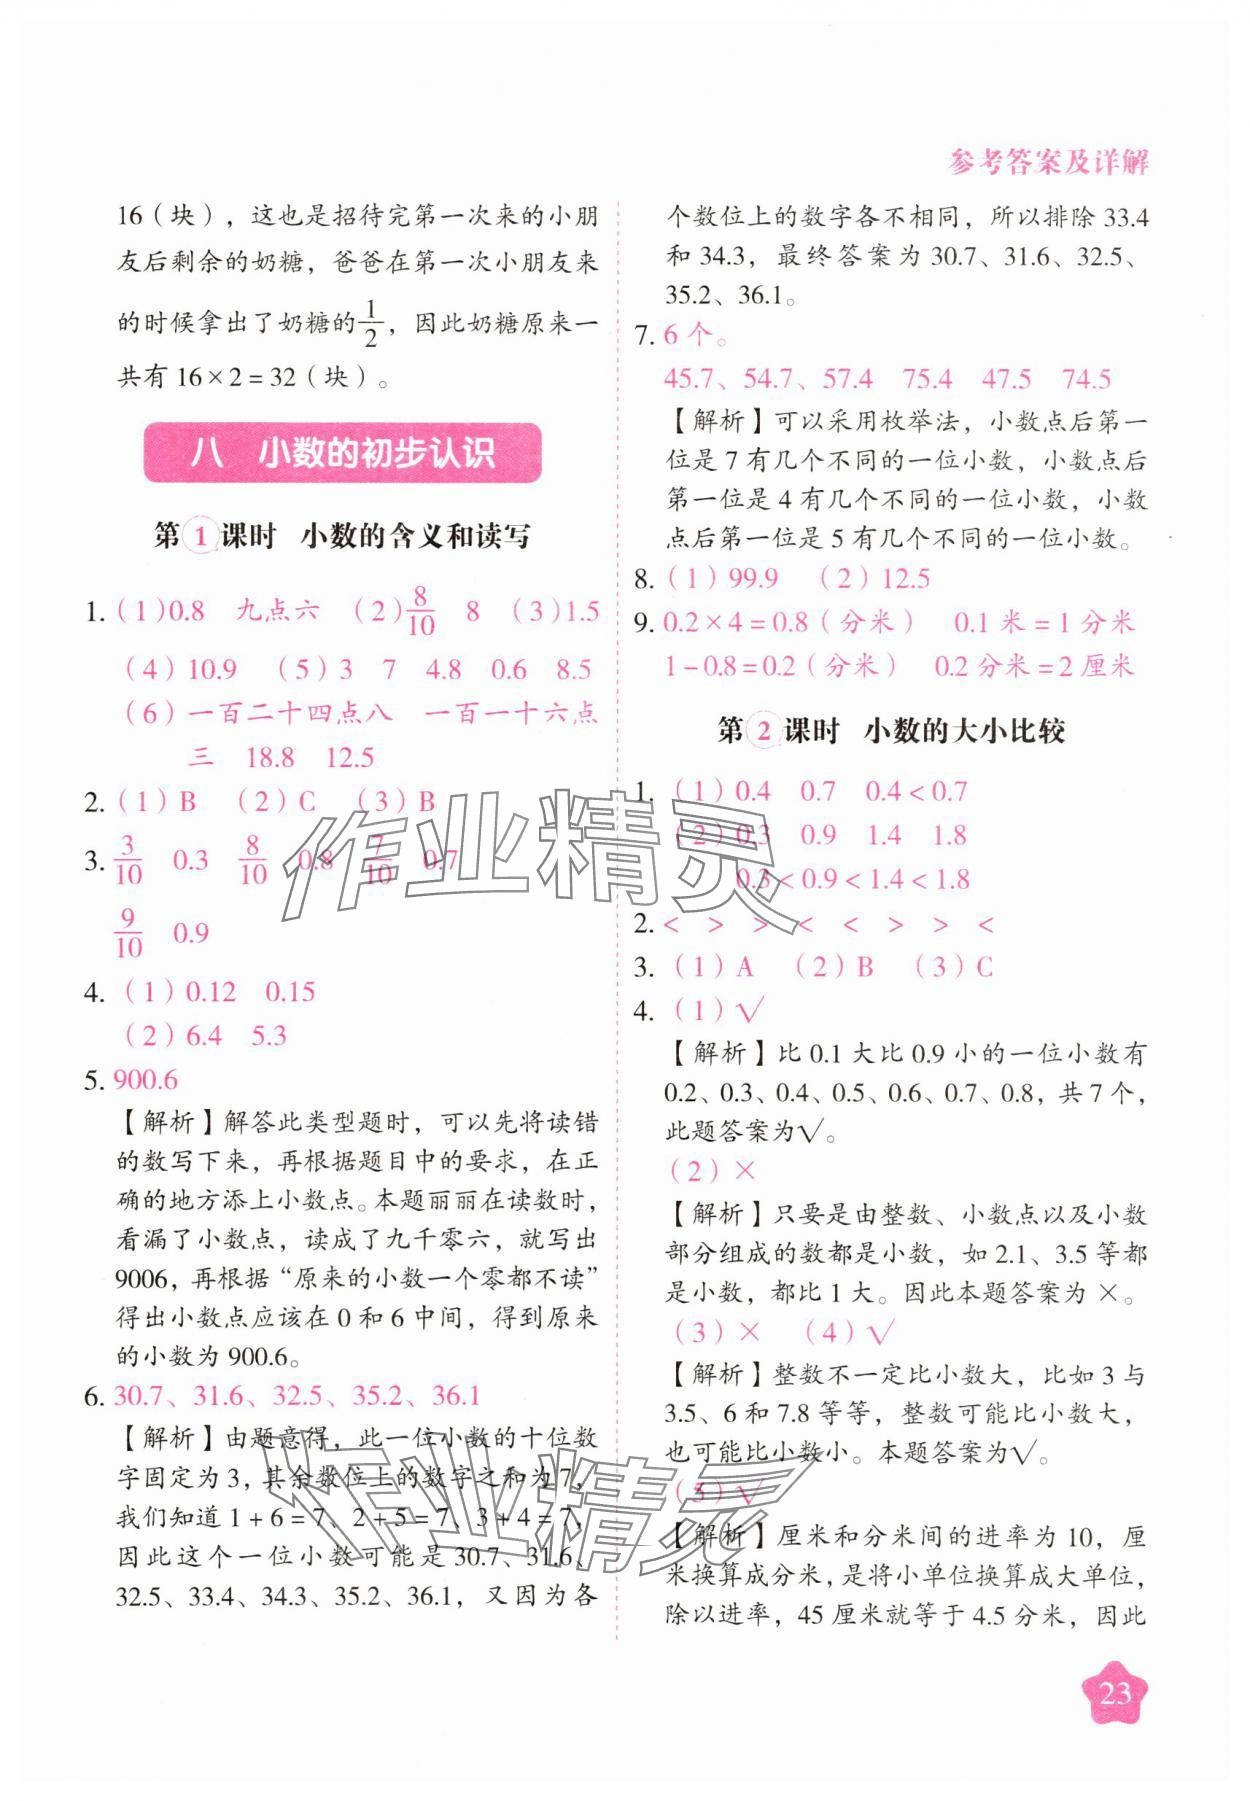 参考答案及详解
16（块），这也是招待完第一次来的小朋
友后剩余的奶糖，爸爸在第一次小朋友来
的时候拿出了奶糖的1/2，因此奶糖原来一
共有 16×2=32（块）。
八 小数的初步认识
第1课时 小数的含义和读写
1.（1）0.8 九点六 （2）8/10 8 （3）1.5
（4）10.9 （5）3 7 4.8 0.6 8.5
（6）一百二十四点八 一百一十六点
三 18.8 12.5
2.（1）B （2）C （3）B
3. 3/10 0.3 8/10 0.8 7/10 0.7
9/10 0.9
4.（1）0.12 0.15
（2）6.4 5.3
5. 900.6
【解析】解答此类型题时，可以先将读错
的数写下来，再根据题目中的要求，在正
确的地方添上小数点。本题丽丽在读数时，
看漏了小数点，读成了九千零六，就写出
9006，再根据“原来的小数一个零都不读”
得出小数点应该在 0 和 6 中间，得到原来
的小数为 900.6。
6. 30.7、31.6、32.5、35.2、36.1
【解析】由题意得，此一位小数的十位数
字固定为 3，其余数位上的数字之和为 7，
我们知道 1+6=7、2+5=7、3+4=7，
因此这个一位小数可能是 30.7、31.6、
32.5、33.4、34.3、35.2、36.1，又因为各
个数位上的数字各不相同，所以排除 33.4
和 34.3，最终答案为 30.7、31.6、32.5、
35.2、36.1。
7. 6 个。
45.7、54.7、57.4 75.4 47.5 74.5
【解析】可以采用枚举法，小数点后第一
位是 7 有几个不同的一位小数，小数点后
第一位是 4 有几个不同的一位小数，小数
点后第一位是 5 有几个不同的一位小数。
8.（1）99.9 （2）12.5
9. 0.2×4=0.8（分米） 0.1 米=1 分米
1-0.8=0.2（分米） 0.2 分米=2 厘米
第2课时 小数的大小比较
1.（1）0.4 0.7 0.4<0.7
（2）0.3 0.9 1.4 1.8
0.3<0.9<1.4<1.8
2. < > > < < > > <
3.（1）A （2）B （3）C
4.（1）√
【解析】比 0.1 大比 0.9 小的一位小数有
0.2、0.3、0.4、0.5、0.6、0.7、0.8，共 7 个，
此题答案为√。
（2）×
【解析】只要是由整数、小数点以及小数
部分组成的数都是小数，如 2.1、3.5 等都
是小数，都比 1 大。因此本题答案为 ×。
（3）× （4）√
【解析】整数不一定比小数大，比如 3 与
3.5、6 和 7.8 等等，整数可能比小数大，
也可能比小数小。本题答案为√。
（5）√
【解析】厘米和分米间的进率为 10，厘
米换算成分米，是将小单位换算成大单位，
除以进率，45 厘米就等于 4.5 分米，因此
作业精灵
作业精灵
23